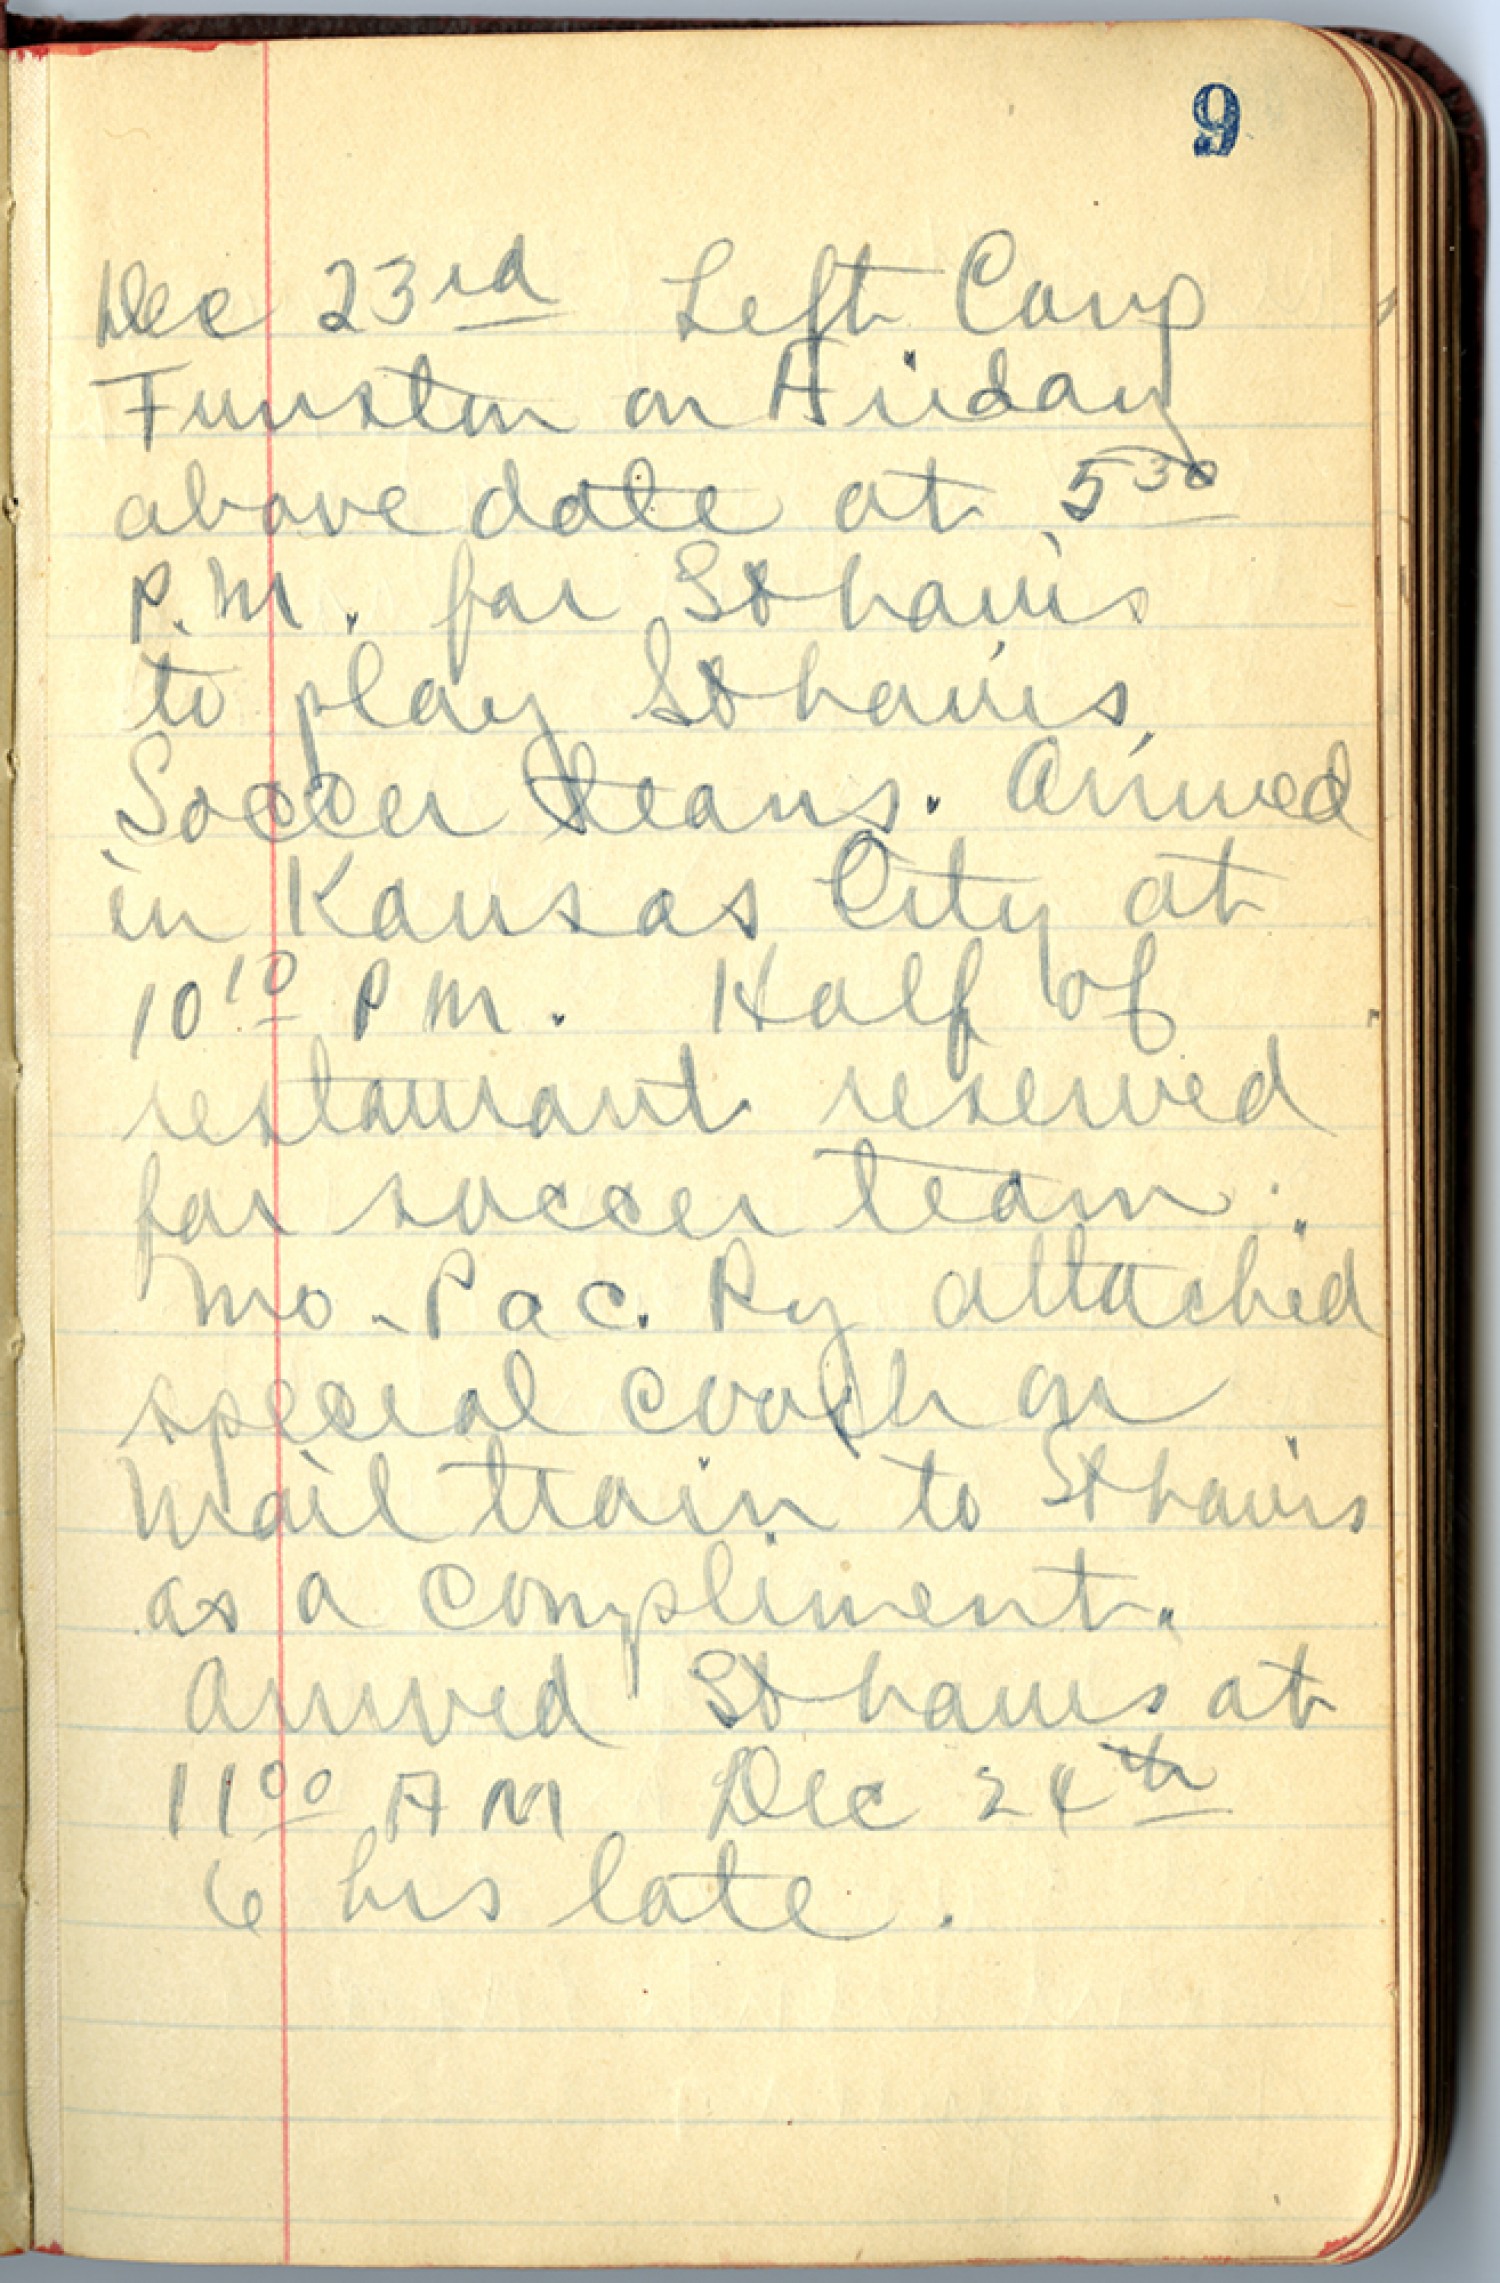 9
Dec 23rd Left Camp
Funston on Friday
above date at 5 30
P.M. for St Louis
to play St Louis
Soccer teams. Arrived
in Kansas City at
10 10 P M. Half of
restaurant reserved
for soccer team.
Mo. Pac. Ry attached
special coach on
Mail train to St Louis
as a compliment.
Arrived St Louis at
11 00 A M Dec 24th
6 hrs late.